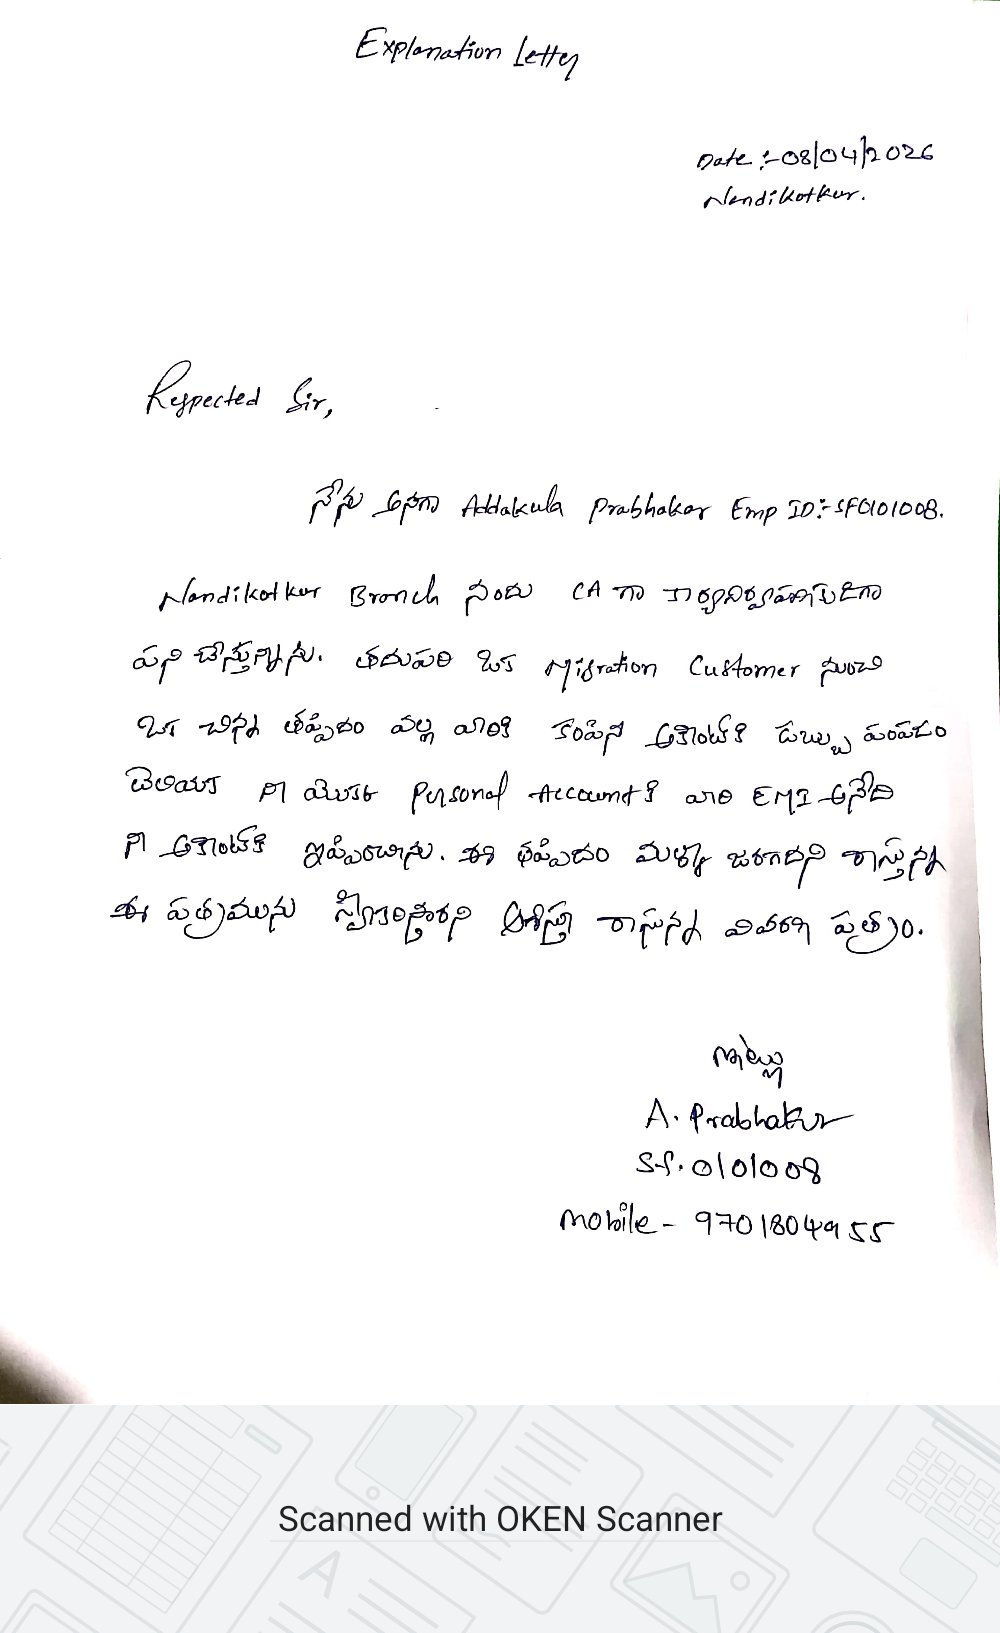 Explanation Letter
Date :- 08/04/2026
Nandikotkur.
Respected Sir,
నేను అనగా Addakula Prabhakar Emp ID:- SF0101008.
Nandikotkur Branch నందు CA గా కార్యనిర్వహకుడిగా
పని చేస్తున్నాను. తదుపరి ఒక Migration Customer నుంచి
ఒక చిన్న తప్పిదం వల్ల వారికి కంపెనీ అకౌంట్‌కి డబ్బు పంపడం
తెలియక నా యొక్క Personal Account కి వారి EMI అనేది
నా అకౌంట్‌కి ఇప్పించాను. ఈ తప్పిదం మళ్ళీ జరగదని రాస్తున్న
ఈ పత్రమును స్వీకరిస్తారని ఆశిస్తూ రాసున్న వివరణ పత్రం.
ఇట్లు
A. Prabhakar
S.f. 0101008
Mobile - 9701804955
Scanned with OKEN Scanner